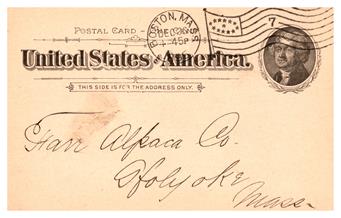 POSTAL CARD
BOSTON, MASS.
DEC 20
-45P
7
United States America.
THIS SIDE IS FOR THE ADDRESS ONLY.
Farr Alpaca Co.
Holyoke
Mass.